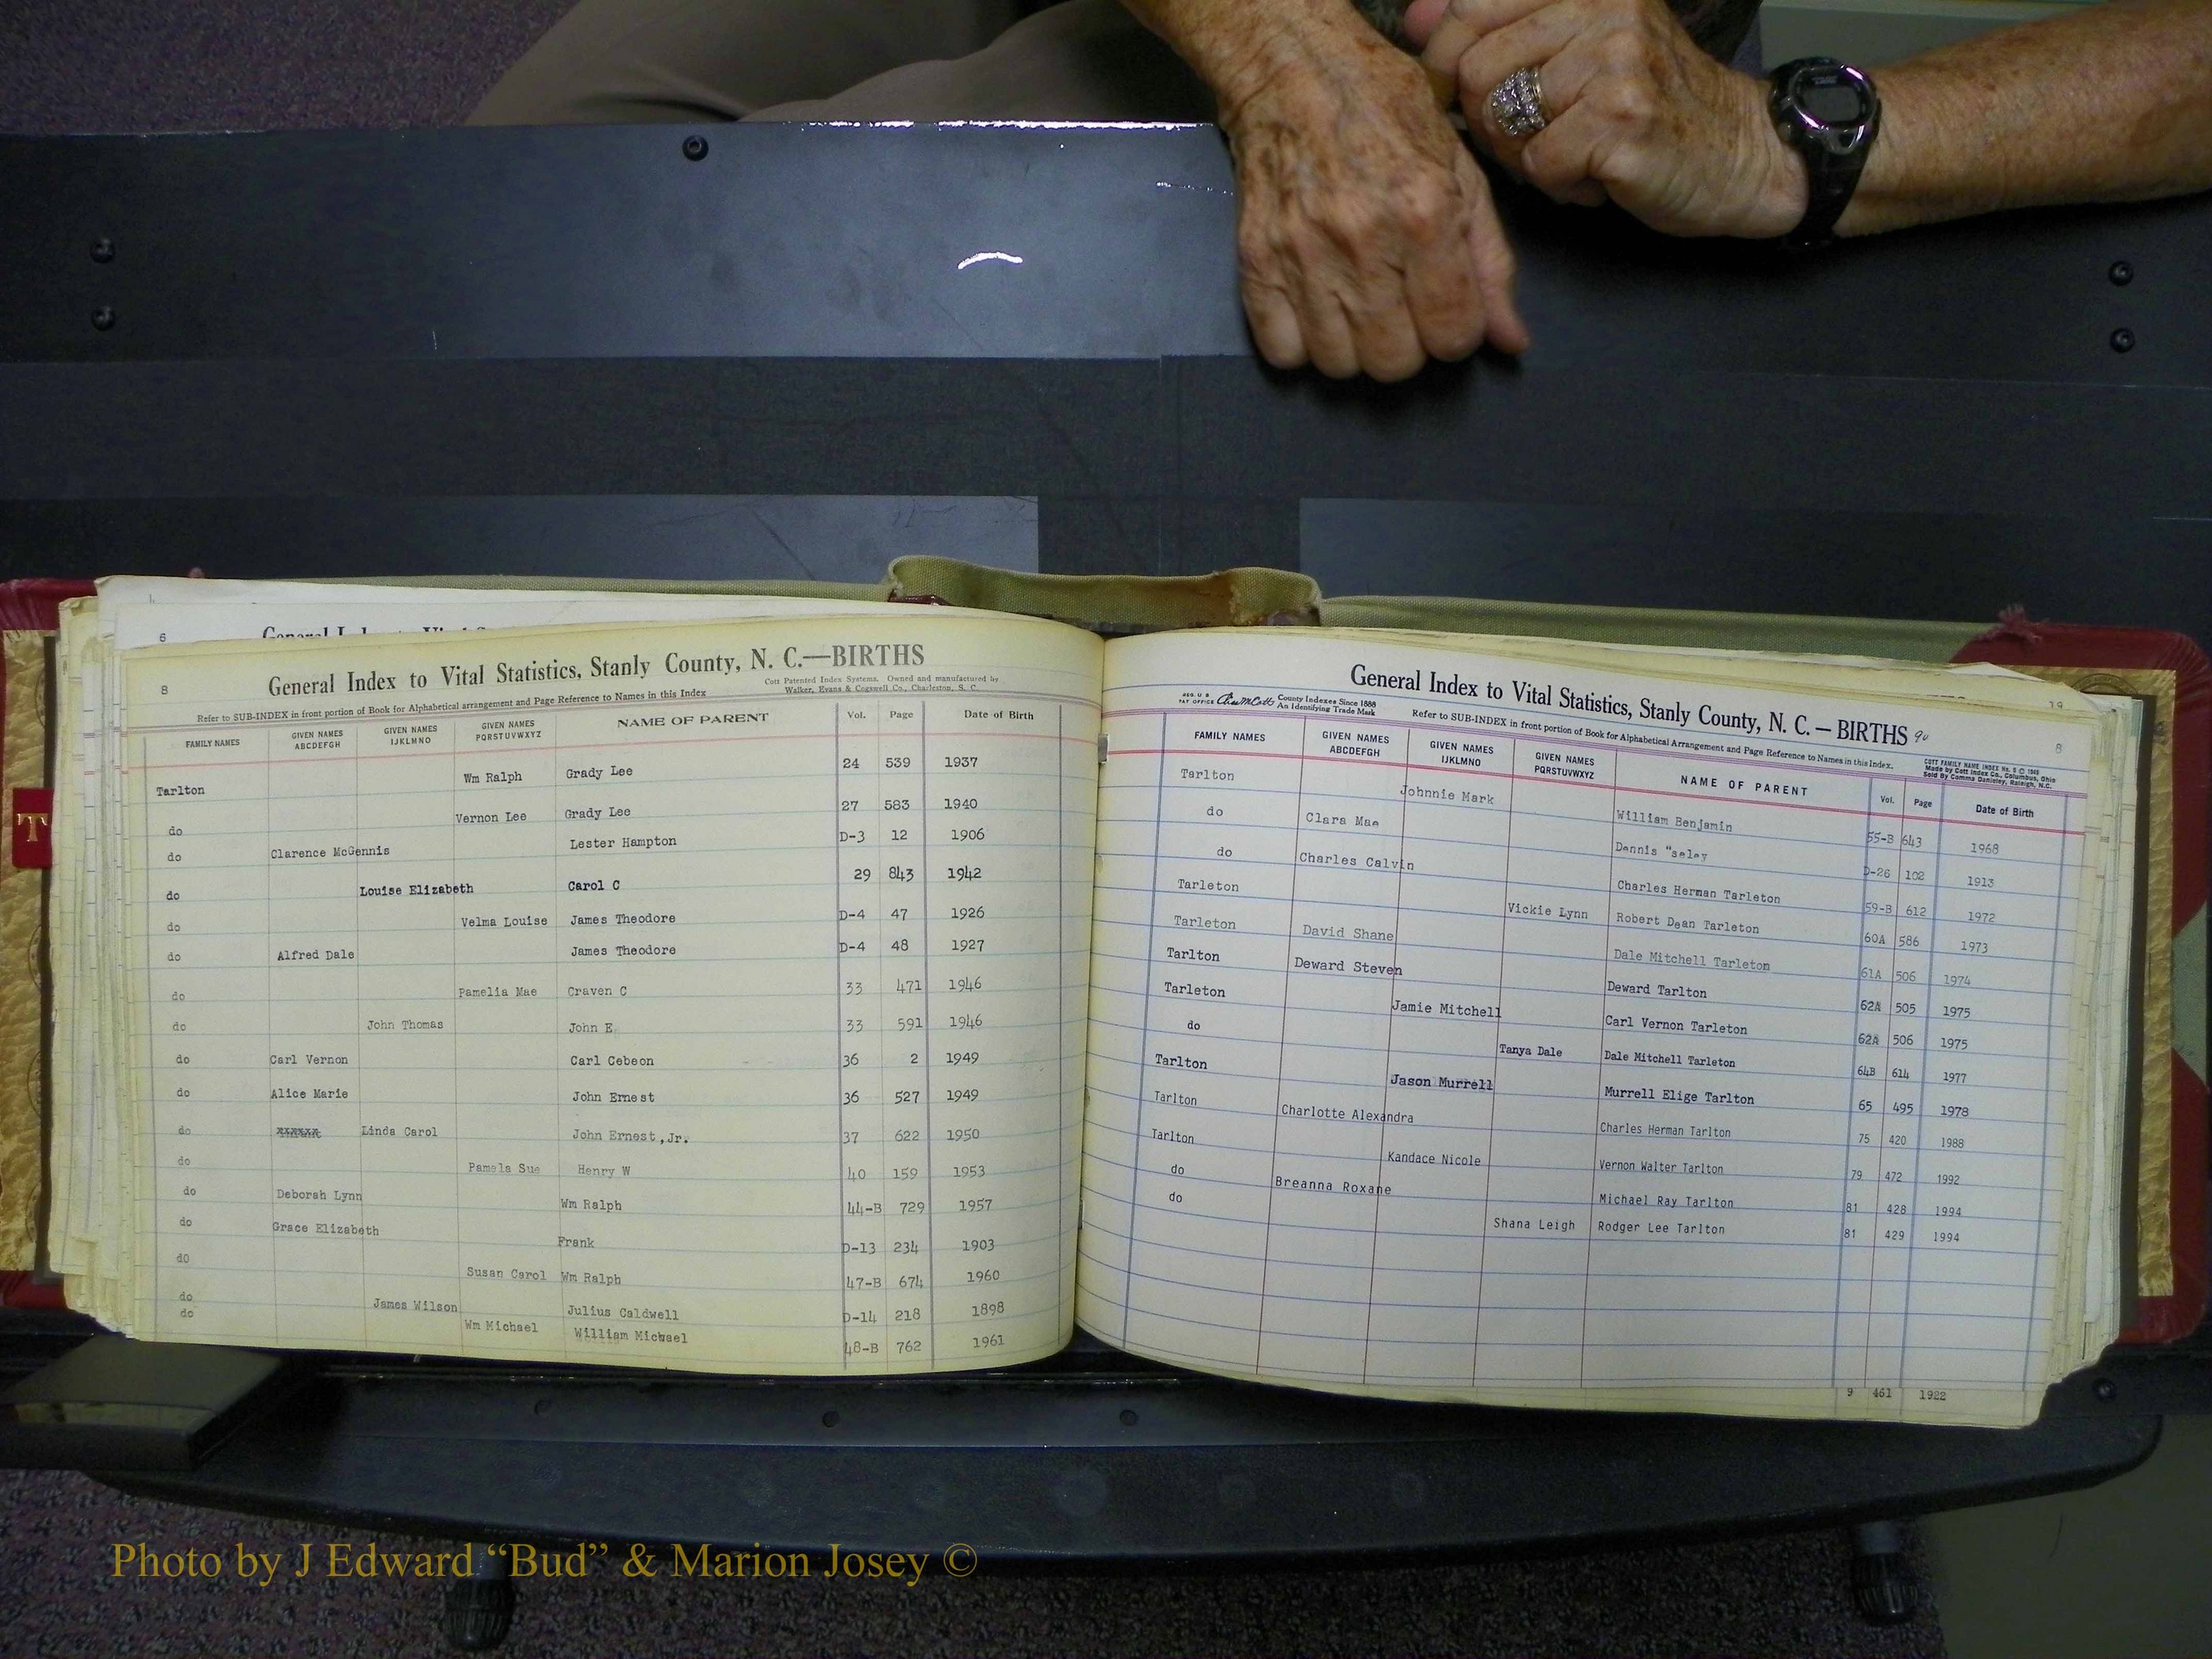 6
8
General Index to Vital Statistics, Stanly County, N. C.—BIRTHS
Cott Patented Index Systems. Owned and manufactured by
Walker, Evans & Cogswell Co., Charleston, S. C.
Refer to SUB-INDEX in front portion of Book for Alphabetical arrangement and Page Reference to Names in this Index
FAMILY NAMES GIVEN NAMES ABCDEFGH GIVEN NAMES IJKLMNO GIVEN NAMES PQRSTUVWXYZ NAME OF PARENT Vol. Page Date of Birth
Tarlton Wm Ralph Grady Lee 24 539 1937
do Vernon Lee Grady Lee 27 583 1940
do Clarence McGennis Lester Hampton D-3 12 1906
do Louise Elizabeth Carol C 29 843 1942
do Velma Louise James Theodore D-4 47 1926
do Alfred Dale James Theodore D-4 48 1927
do Pamelia Mae Craven C 33 471 1946
do John Thomas John E 33 591 1946
do Carl Vernon Carl Cebeon 36 2 1949
do Alice Marie John Ernest 36 527 1949
do xxxxxx Linda Carol John Ernest,Jr. 37 622 1950
do Pamela Sue Henry W 40 159 1953
do Deborah Lynn Wm Ralph 44-B 729 1957
do Grace Elizabeth Frank D-13 234 1903
do Susan Carol Wm Ralph 47-B 674 1960
do James Wilson Julius Caldwell D-14 218 1898
do Wm Michael William Michael 48-B 762 1961
T
General Index to Vital Statistics, Stanly County, N. C. — BIRTHS
8
REG. U. S. PAT OFFICE County Indexes Since 1888 An Identifying Trade Mark
Refer to SUB-INDEX in front portion of Book for Alphabetical Arrangement and Page Reference to Names in this Index.
COTT FAMILY NAME INDEX
Made by Cott Index Co., Columbus, Ohio
FAMILY NAMES GIVEN NAMES ABCDEFGH GIVEN NAMES IJKLMNO GIVEN NAMES PQRSTUVWXYZ NAME OF PARENT Vol. Page Date of Birth
Tarlton Johnnie Mark William Benjamin 55-B 643 1968
do Clara Mae Dennis D-26 102 1913
do Charles Calvin Charles Herman Tarleton 59-B 612 1972
Tarleton Vickie Lynn Robert Dean Tarleton 60A 586 1973
Tarleton David Shane Dale Mitchell Tarleton 61A 506 1974
Tarlton Deward Steven Deward Tarlton 62A 505 1975
Tarleton Jamie Mitchell Carl Vernon Tarleton 62A 506 1975
do Tanya Dale Dale Mitchell Tarleton 64B 614 1977
Tarlton Jason Murrell Murrell Elige Tarlton 65 495 1978
Tarlton Charlotte Alexandra Charles Herman Tarlton 75 420 1988
Tarlton Kandace Nicole Vernon Walter Tarlton 79 472 1992
do Breanna Roxane Michael Ray Tarlton 81 428 1994
do Shana Leigh Rodger Lee Tarlton 81 429 1994
9 461 1922
Photo by J Edward “Bud” & Marion Josey ©